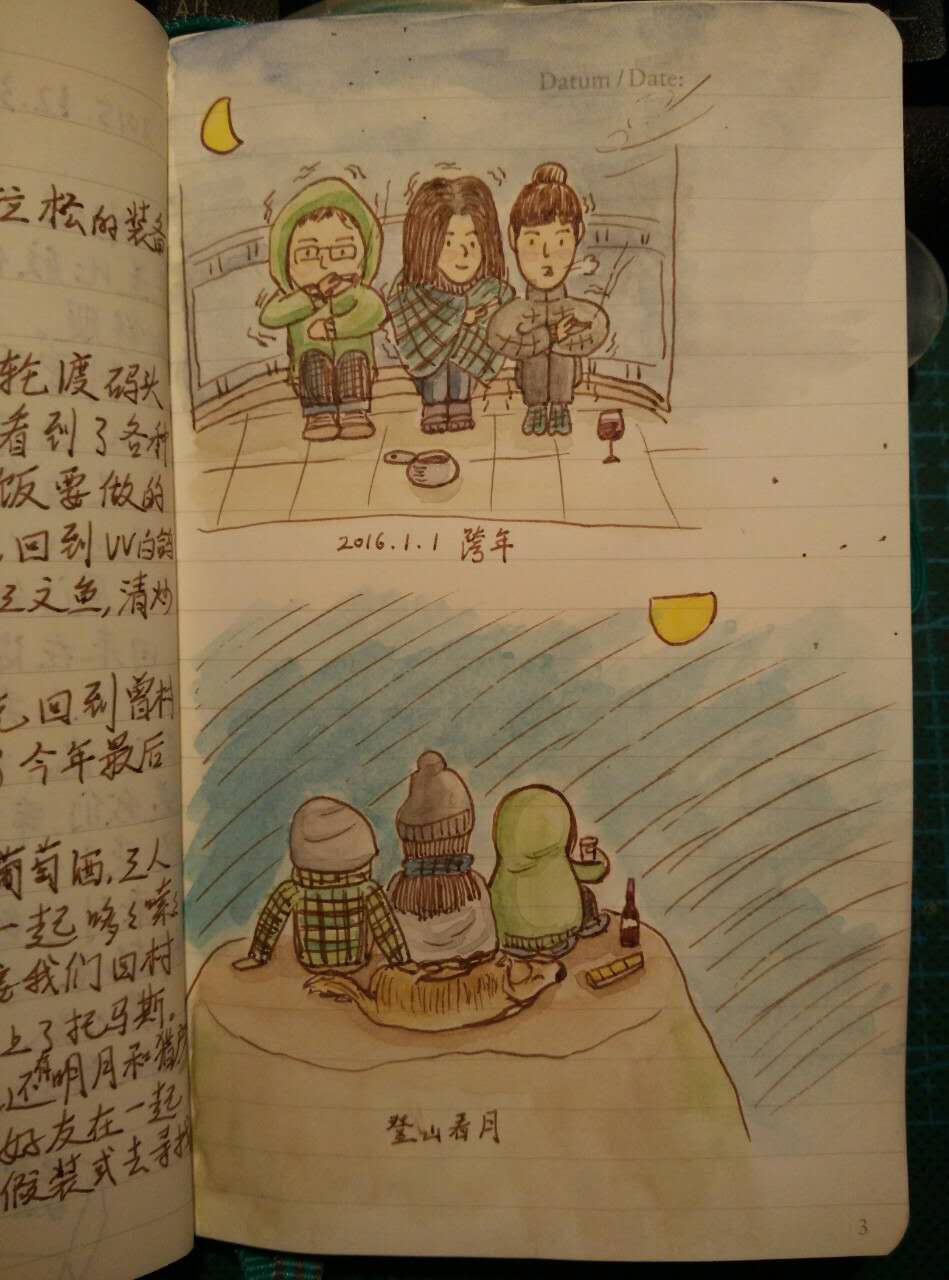 Alt
拉松的装备
轮渡码头
看到了各种
饭要做的
回到VV白鸽
三文鱼,清炒
回到曾村
今年最后
葡萄酒,三人
一起哆哆嗦
我们回村
上了托马斯。
还有明月和猎
好友在一起
假装式去寻找
Datum / Date:
2016.1.1 跨年
登山看月
3